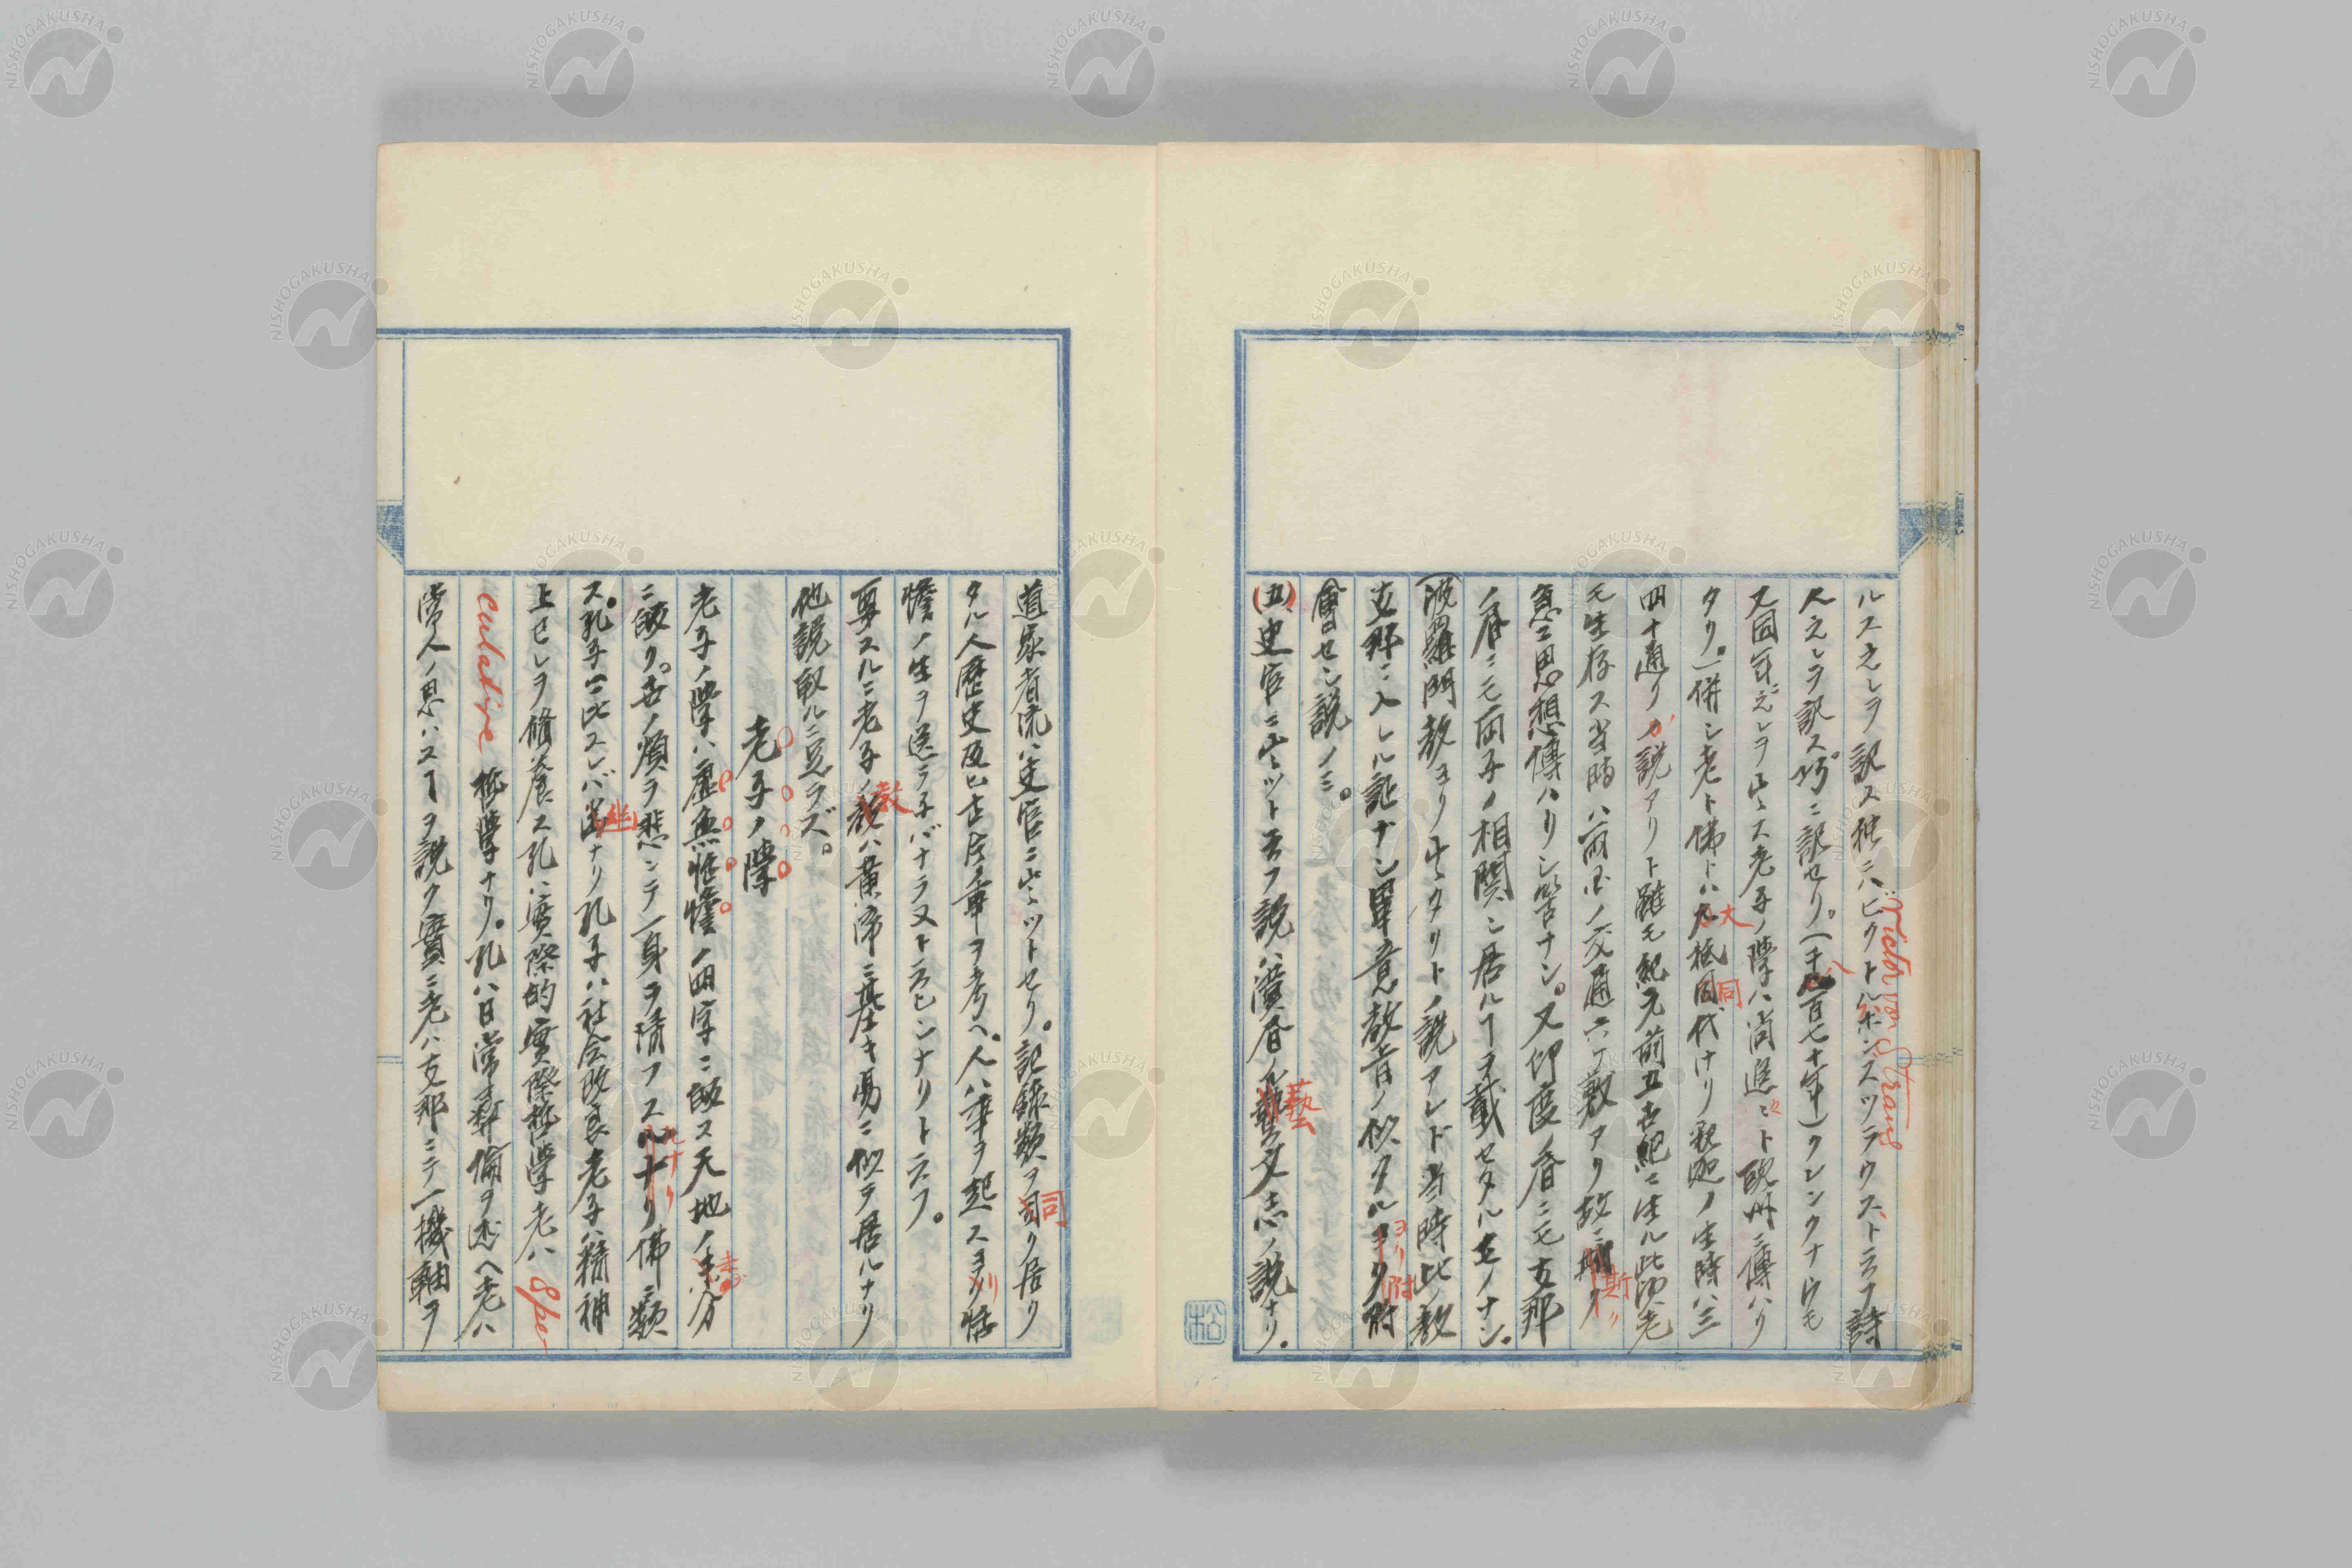 ルス之レヲ訳ス独ニハビクトルホンスツラウストラフ詩
Victor von Strauss
人之レヲ訳ス巧ニ訳セリ。(千八百七十年)クレンクナウモ
又同年之レヲ出ス老子ノ學ハ尚進ミト欧州ニ傳ハリ
タリ。併シ老ト佛トハ大抵同代ナリ釈迦ノ生時ハ三
大
同
四十通リカ説アリト雖モ紀元前五世紀ニ生ル此内老
モ生存ス当時ハ両国ノ交通六ケ敷アリ故ニ斯ク
斯
急ニ思想傳ハリシ筈ナシ。又印度ノ書ニモ支那
ノ書ニモ両子ノ相関シ居ルヿヲ載セタルモノナシ。
波羅門教ヨリ出タリトノ説アレド当時此ノ教
支那ニ入レル証ナシ畢竟教旨ノ似タルヨリ附
ヨリ附
會セシ説ノミ。
(五)史官ニ出ツト云フ説ハ漢書ノ藝文志ノ説ナリ。
藝
松
道家者流ハ史官ニ出ツトセリ。記録類ヲ司リ居リ
司
タル人歴史及ヒ古今ノ事ヲ考ヘ。人ハ事ヲ起スヨリ恬
リ
憺ノ生ヲ送ラネバナラヌト云ヒシナリト云フ。
尊スルニ老子ノ教ハ黄帝ニ基キ易ニ似テ居ルナリ
教
他説取ルニ足ラズ。
老子ノ學
老子ノ學ハ虚無恬憺ノ四字ニ皈ス天地ノ未分
ニ皈リ。世ノ煩ヲ悲シテ一身ヲ清フス
ナリ佛ニ類
ス。孔子ニ比スレバ ナリ孔子ハ社会改良老子ハ精神
上已レヲ修養ス孔ハ実際的実際哲學老ハ Spe-
culative 哲學ナリ。孔ハ日常彝倫ヲ述ヘ老ハ
常人ノ思ハヌヿヲ説ク実ニ老ハ支那ニテ一機軸ヲ
NISHOGAKUSHA